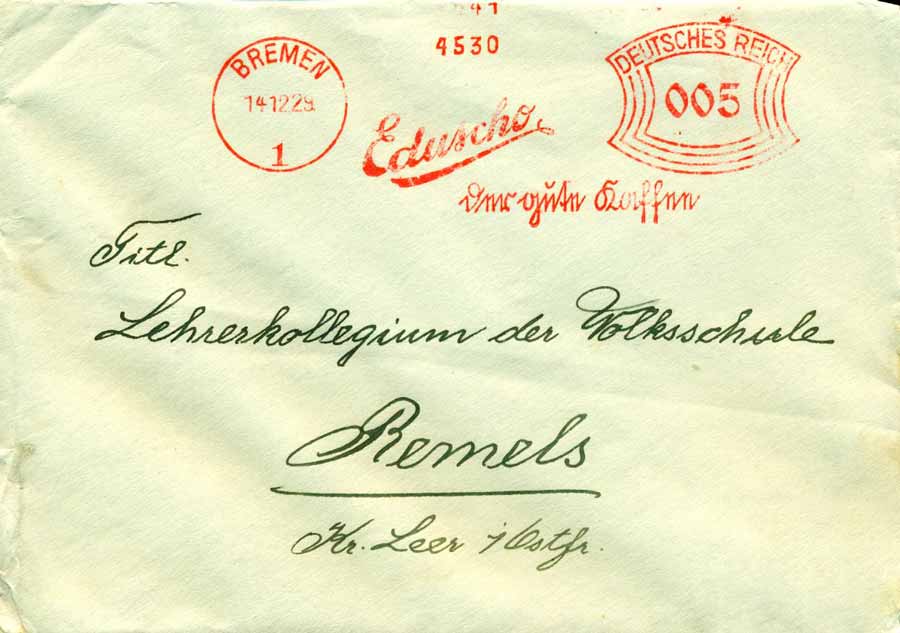 41
4530
BREMEN
14.12.29.
1
DEUTSCHES REICH
005
Eduscho
der gute Kaffee
Titl.
Lehrerkollegium der Volksschule
Remels
Kr. Leer i/Ostfr.